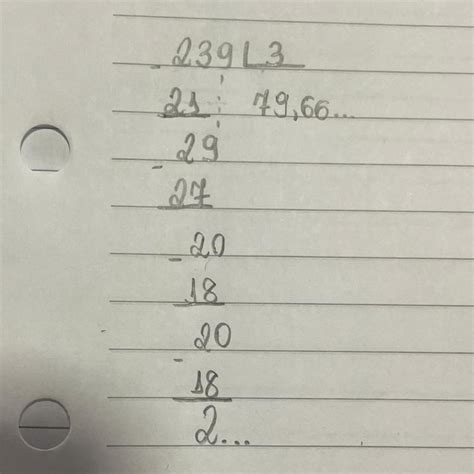 - 239 | 3
21 79,66...
- 29
27
- 20
18
- 20
18
2...